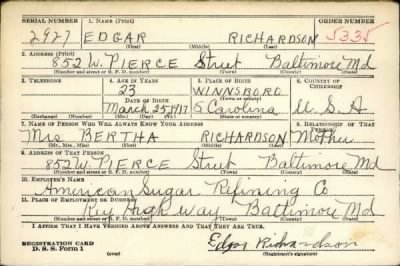 SERIAL NUMBER 1. NAME (Print) ORDER NUMBER
2927 EDGAR RICHARDSON 5335
(First) (Middle) (Last)
2. ADDRESS (Print)
852 W. PIERCE Street Baltimore Md
(Number and street or R. F. D. number) (Town) (County) (State)
3. TELEPHONE 4. AGE IN YEARS 5. PLACE OF BIRTH 6. COUNTRY OF CITIZENSHIP
23 WINNSBORO
DATE OF BIRTH (Town or county)
March 25, 1917 S Carolina U. S. A
(Exchange) (Number) (Mo.) (Day) (Yr.) (State or country)
7. NAME OF PERSON WHO WILL ALWAYS KNOW YOUR ADDRESS 8. RELATIONSHIP OF THAT PERSON
Mrs BERTHA RICHARDSON Mother
(Mr., Mrs., Miss) (First) (Middle) (Last)
9. ADDRESS OF THAT PERSON
852 W. PIERCE Street Baltimore Md
(Number and street or R. F. D. number) (Town) (County) (State)
10. EMPLOYER'S NAME
American Sugar Refining Co
11. PLACE OF EMPLOYMENT OR BUSINESS
Key Highway Baltimore Md
(Number and street or R. F. D. number) (Town) (County) (State)
I AFFIRM THAT I HAVE VERIFIED ABOVE ANSWERS AND THAT THEY ARE TRUE.
REGISTRATION CARD Edgar Richardson
D. S. S. Form 1 (over) (Registrant's signature)